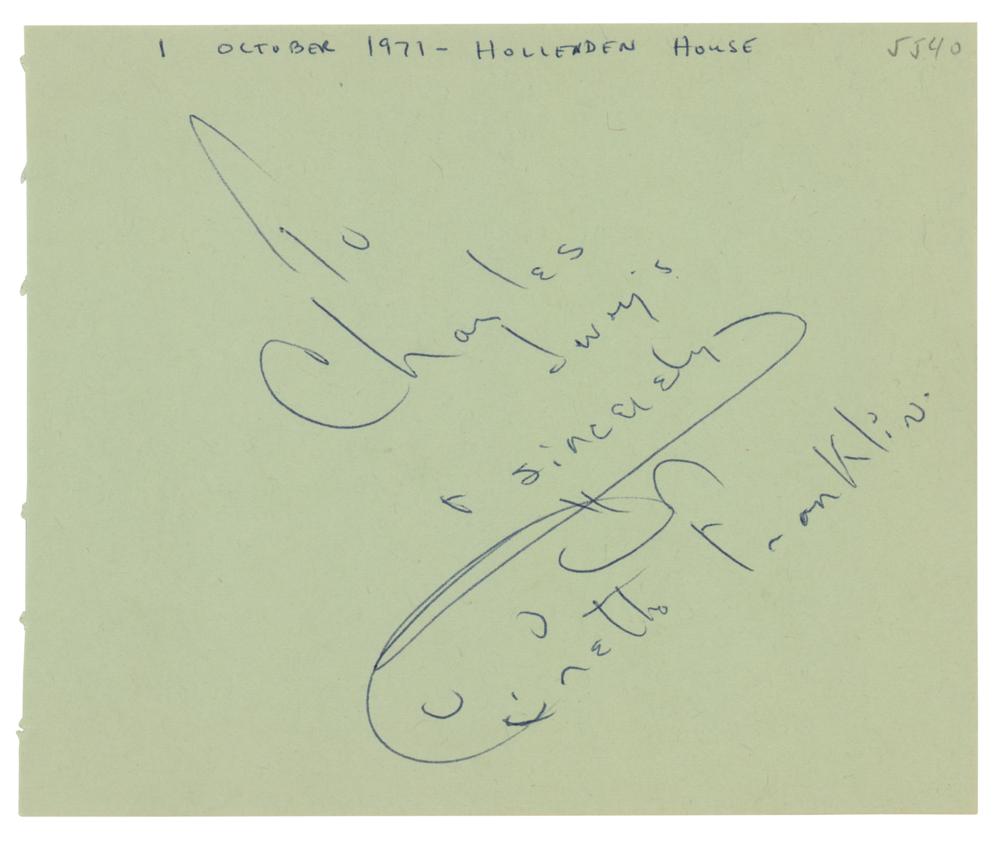 1 OCTOBER 1971 - HOLLENDEN HOUSE 5540
To
Charles
sincerely
Aretha Franklin.